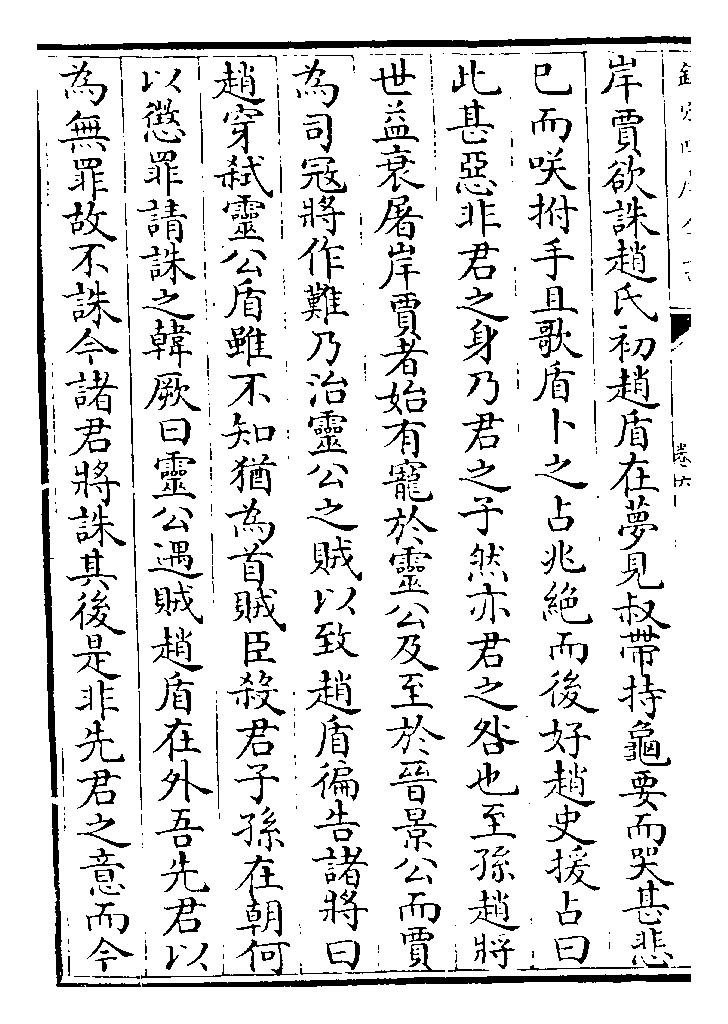 岸賈欲誅趙氏初趙盾在夢見叔帶持龜要而哭甚悲
已而咲拊手且歌盾卜之占兆絕而後好趙史援占曰
此甚惡非君之身乃君之子然亦君之咎也至孫趙將
世益衰屠岸賈者始有寵於靈公及至於晉景公而賈
為司冦將作難乃治靈公之賊以致趙盾徧告諸將曰
趙穿弑靈公盾雖不知猶為首賊臣殺君子孫在朝何
以懲罪請誅之韓厥曰靈公遇賊趙盾在外吾先君以
為無罪故不誅今諸君將誅其後是非先君之意而今